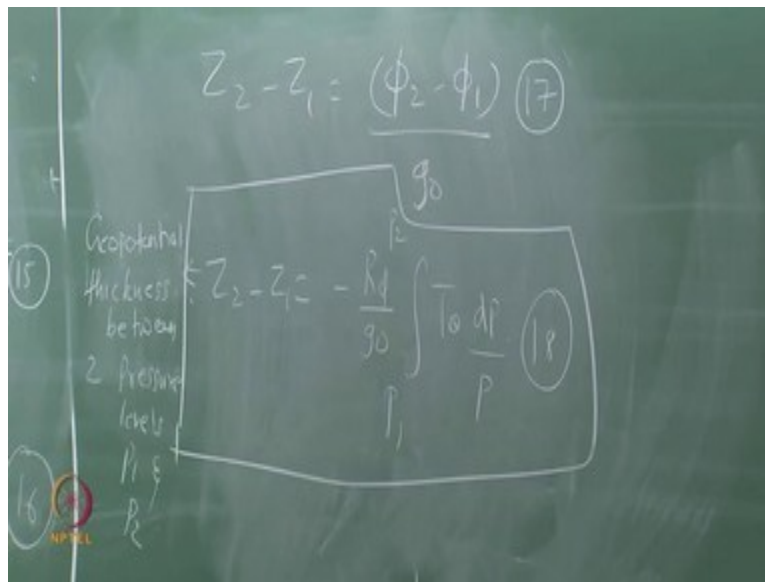 Z₂ - Z₁ = (ϕ₂ - ϕ₁) 17
g₀
Geopotential
thickness
between
2 Pressure
levels
P₁ &
P₂
Z₂ - Z₁ = - Rd/g₀ ∫ P₁ P₂ T dP/P 18
15
16
NPTEL